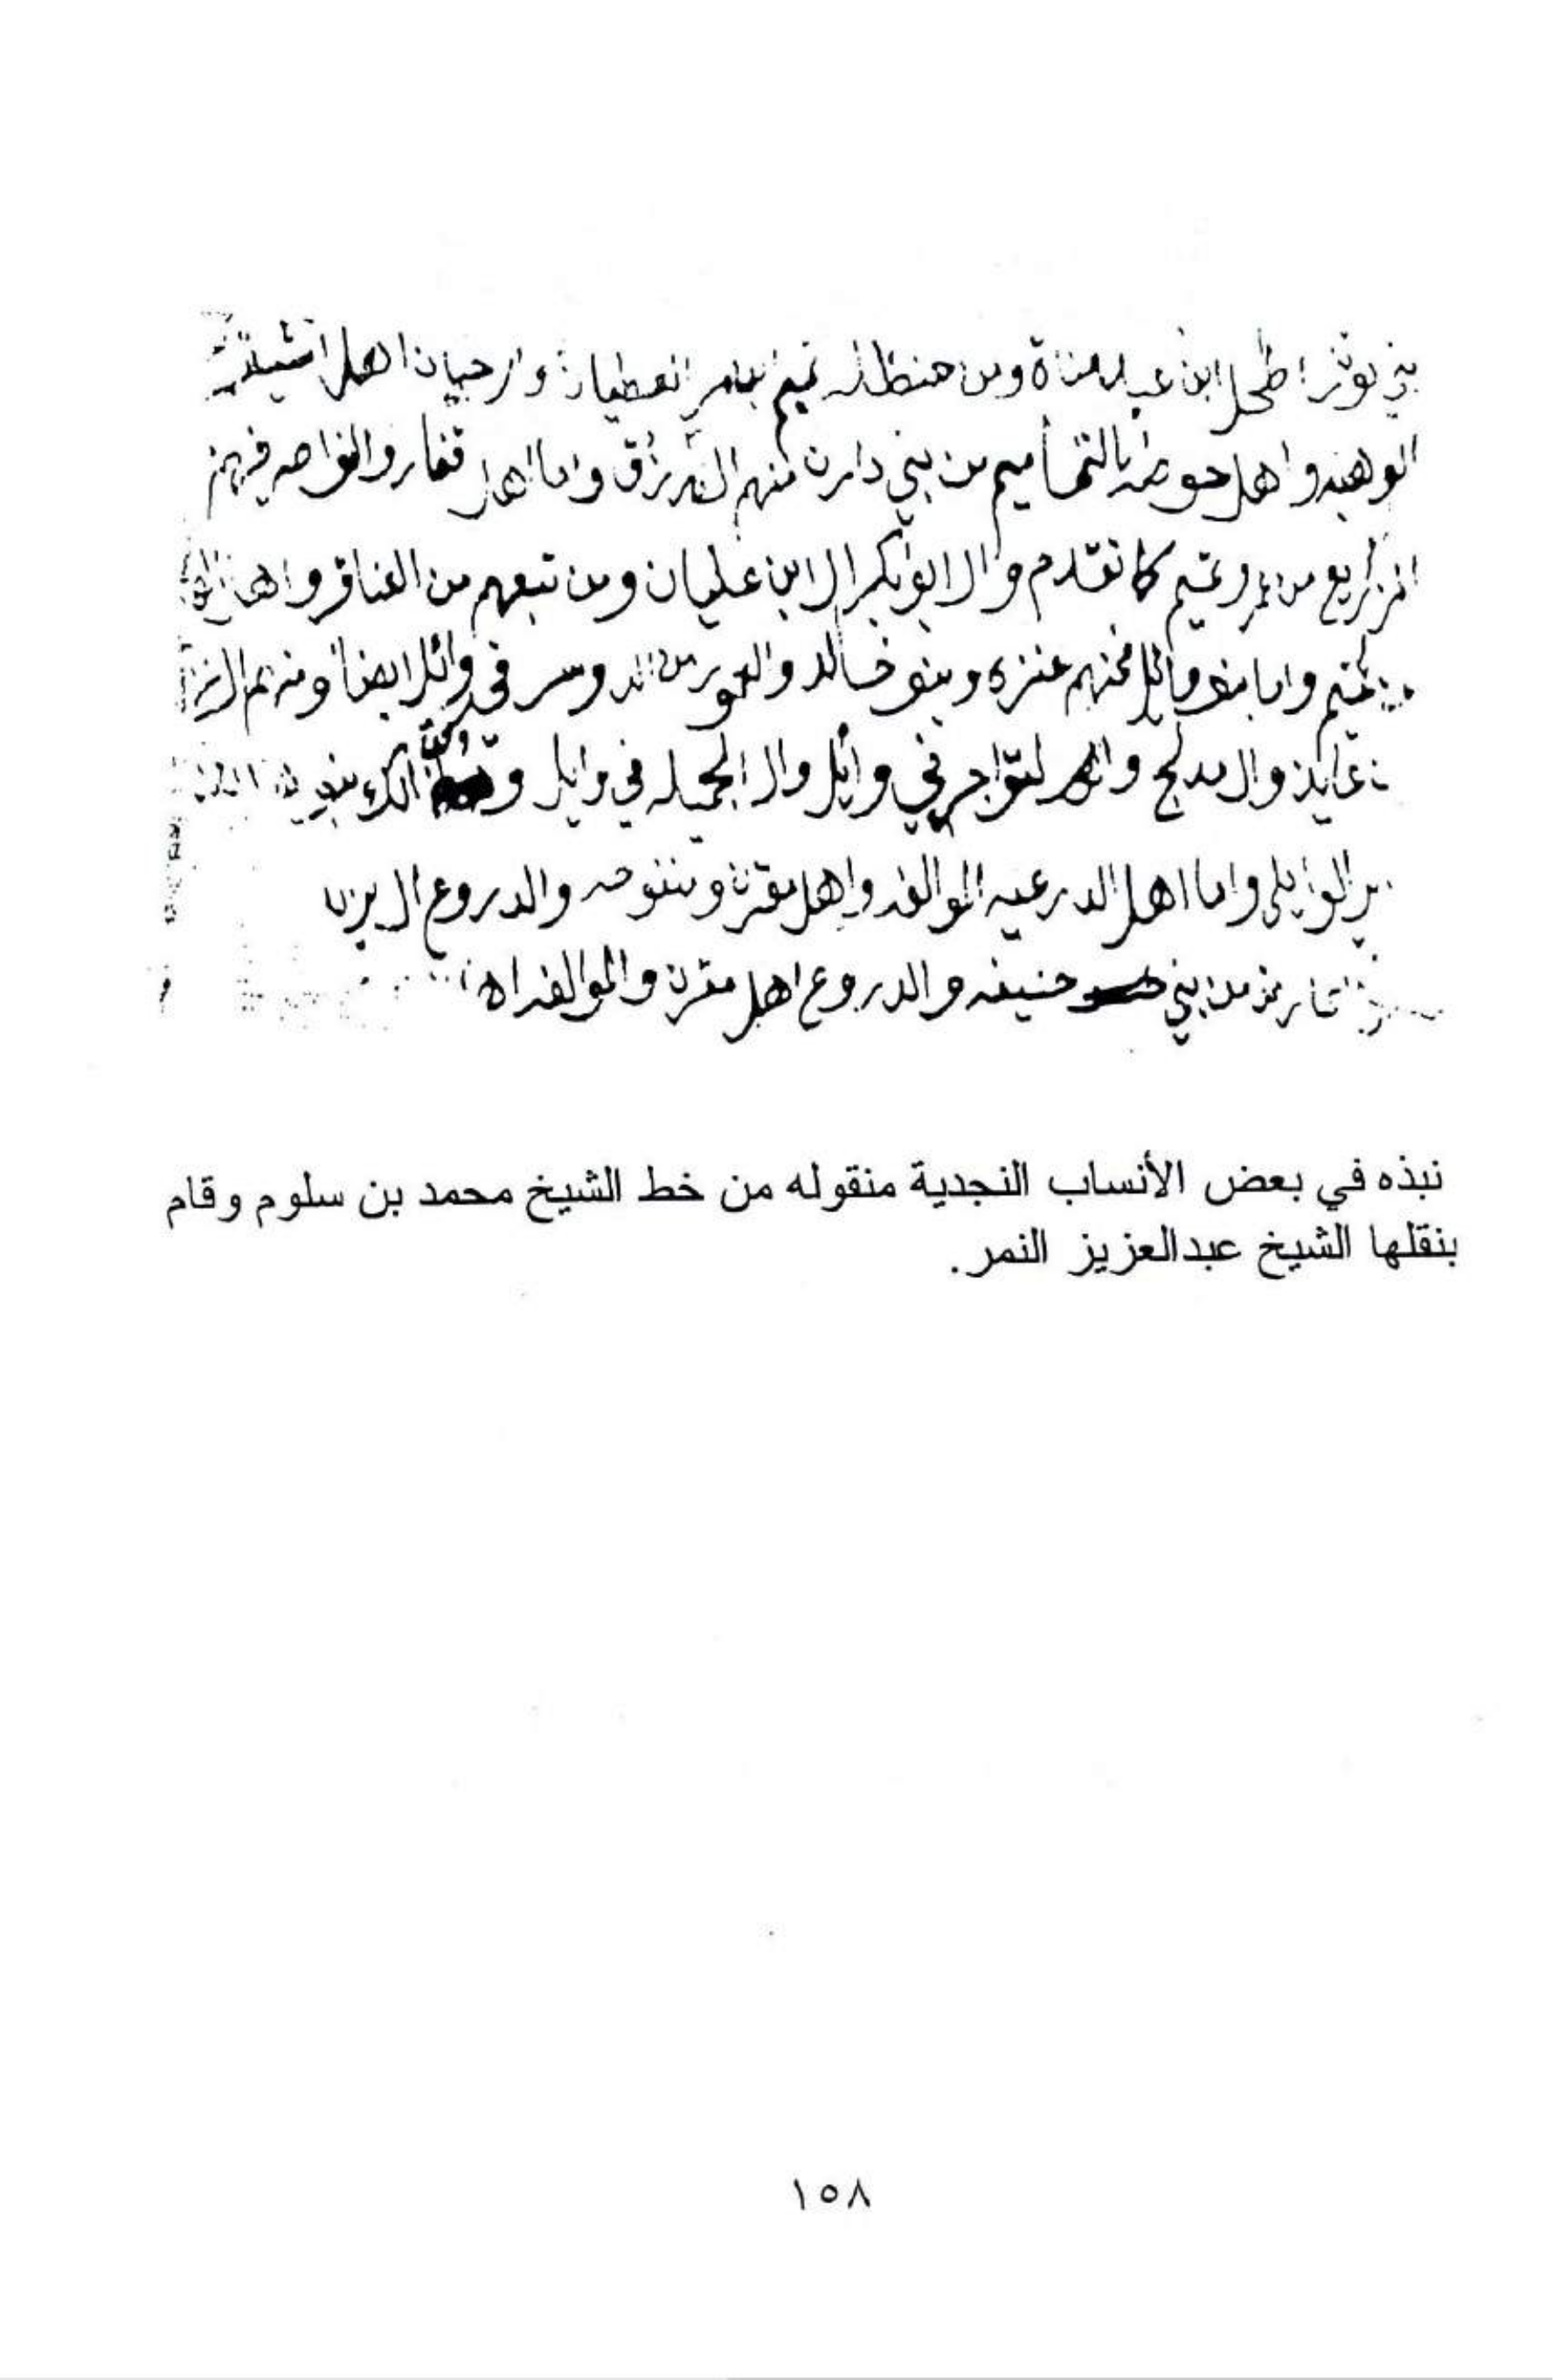 بني ثور اطحل ابن عبد مناة ومن حنظله تميم العطيان وال حيان اهل اشيقر
الوهبه واهل حوطة التماميم من بني دارم منهم الفرزدق واما اهل قفار والنواصر فهم
من عمرو تميم كما تقدم وال ابو بكر ال ابن عليان ومن تبعهم من العناقر واهل
تميم واما بنو وائل فمنهم عنزه وبنو خالد والعمور من الدوسر في وائل ايضا ومنهم
عايذ وال مدلج والتواجر في وائل وال الجميله في وايل وكذالك بنو
الوايلي واما اهل الدرعيه الموالفه واهل مقرن ومنفوحه والدروع ال يزيد
من بني حنيفه والدروع اهل مقرن والموالفه اه
نبذه في بعض الأنساب النجدية منقوله من خط الشيخ محمد بن سلوم وقام
بنقلها الشيخ عبدالعزيز النمر.
١٥٨